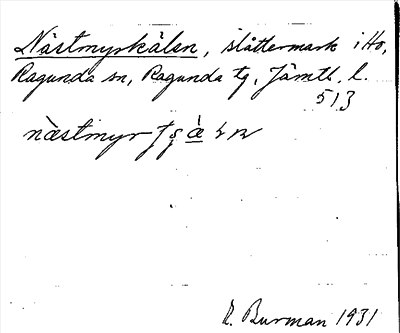 Nästmyrkälen, slåttermark i Ho,
Ragunda sn, Ragunda tg, Jämtl. l.
513
næstmyr
R. Burman 1931